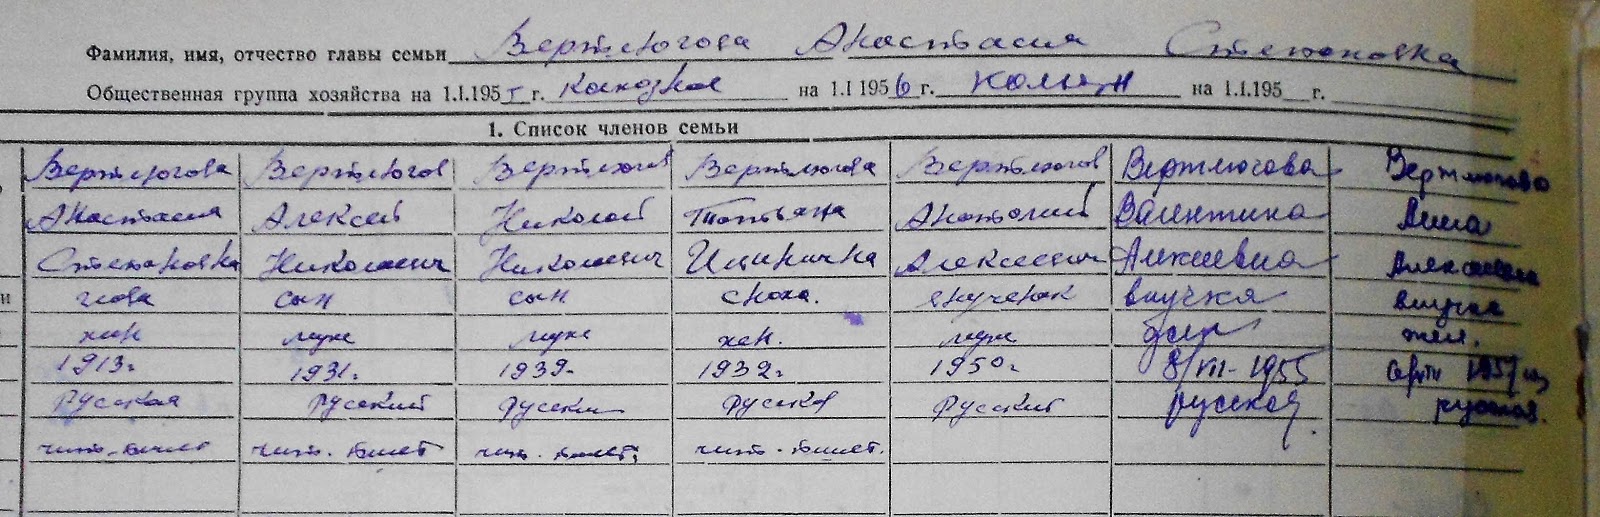 Фамилия, имя, отчество главы семьи Вертлюгова Анастасия Степановна
Общественная группа хозяйства на 1.I.195 5 г. Колхозная на 1.I 195 6 г. на 1.I.195 г.
1. Список членов семьи
Вертлюгова Вертлюгов Вертлюгов Вертлюгова Вертлюгов Вертлюгова Вертлюгова
Анастасия Алексей Николай Татьяна Анатолий Валентина
Степановна Николаевич Николаевич Алексеевич Алексеевна Алексеевна
и глова сын сын сноха. внученок внучка внучка
жен муж муж жен. муж жен.
1913г 1931г. 1939г 1932г 1950г 8/VII-1955 1957
Русская Русский Русский Русская Русский русская русская.
чит.-пишет чит. пишет чит. пишет, чит.-пишет.